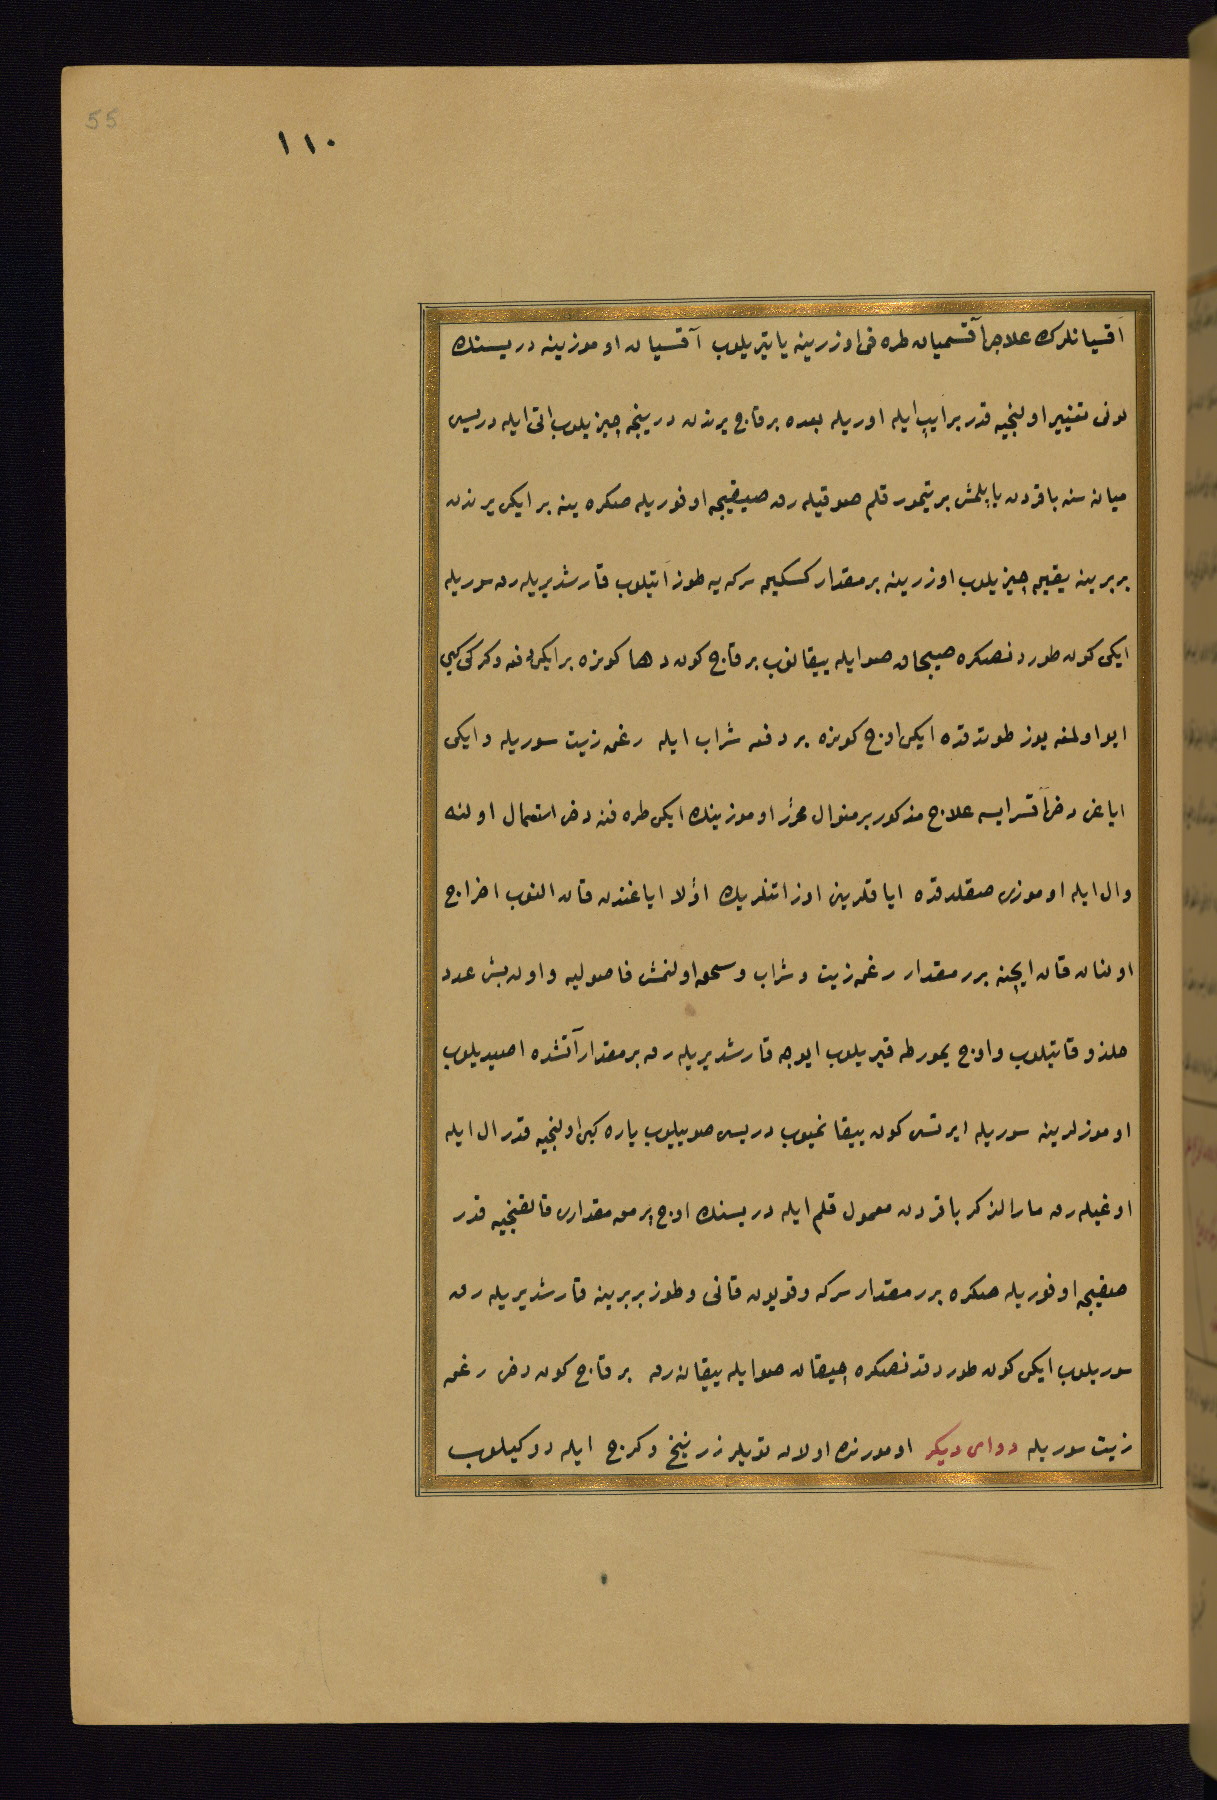 55
١١٠
آقسیانلرك علاجی آقسمیان طرەفی اوزرینه یاتیریلوب آقسیان اوموزینه دریسنك
لونی تغییر اولنجیه قدر بر ایپ ایله اوریله بعده بر قاچ یرندن درینجه چیزیلوب اتی ایله دریسی
میانه سنه باقردن یاپلمش بر تیمور قلم صوقیله رق صیقیجه اوفوریله صكره ینه بر ایكی یرندن
بربرینه یقین چیزیلوب اوزرینه بر مقدار كسكین سركه یه طوز آتیلوب قارشدیریله رق سوریله
ایكی كون طوردقدنصكره صیجاق صو ایله ییقانوب بر قاچ كون دها كونده بر ایكی دفعه كزكی كبی
ایو اولمغه یوز طوتدقده ایكی اوچ كونده بر دفعه شراب ایله رغن زیت سوریله و ایكی
ایاغی دخی آقسر ایسه علاج مذكور بر منوال محرر اوموزینك ایكی طرەفنه دخی استعمال اولنه
وال ایله اوموزی صقلدقده ایاقلرین اوزاتنلریك اولا ایاغندن قان النوب اخراج
اولنان قان ایچنه برر مقدار رغن زیت و شراب و سحق اولنمش فاصولیه و اون بش عدد
حلذو قاتیلوب و اوچ یمورطه قیریلوب ایوجه قارشدیریله رق بر مقدار آتشده اصیدیلوب
اوموزلرینه سوریله ایرتسی كون ییقانمیوب دریسی صوییلوب یاره كبی اولنجیه قدر ال ایله
اوغیله رق مارالذكر باقردن معمول قلم ایله دریسنك اوچ پرمق مقداری قالقنجیه قدر
صیقیجه اوفوریله صكره برر مقدار سركه و قویون قانی و طوز بربرینه قارشدیریله رق
سوریلوب ایكی كون طوردقدنصكره چیقان صو ایله ییقانه رق بر قاچ كون دخی رغن
زیت سوریله دوای دیكر اوموزنده اولان تویلر زرنیخ و كرج ایله دوكیلوب